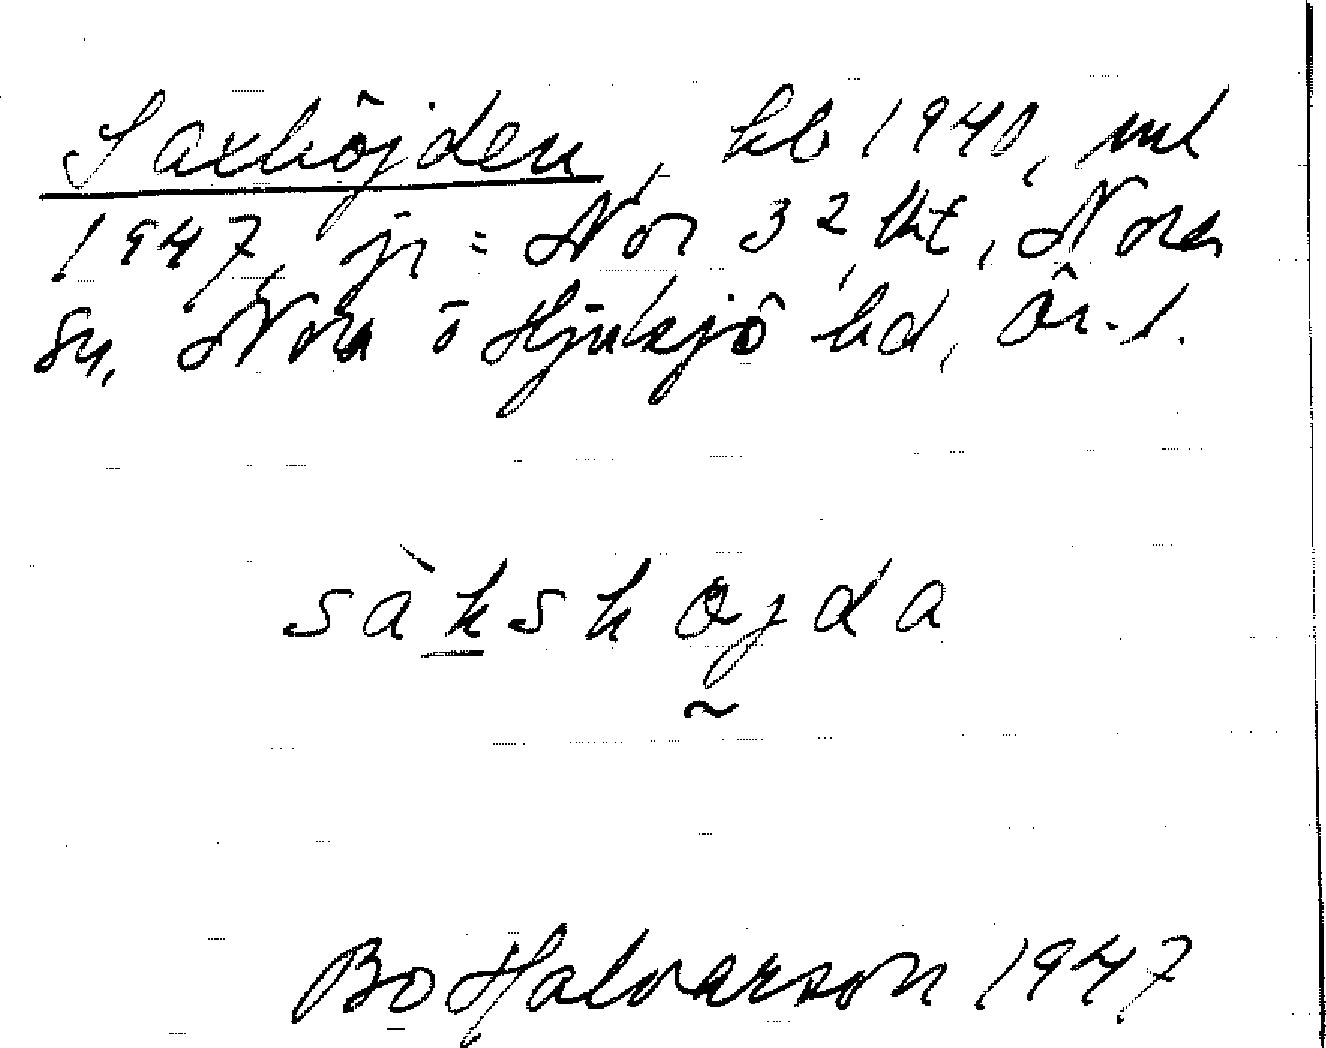 Saxhöjden, kb 1940, ml
1947, jr = Nor 32, Vkt, Nora
sn, Nora o Hjulsjö hd, Ör. l.
sàkshøjda
Bo Halvarson 1947